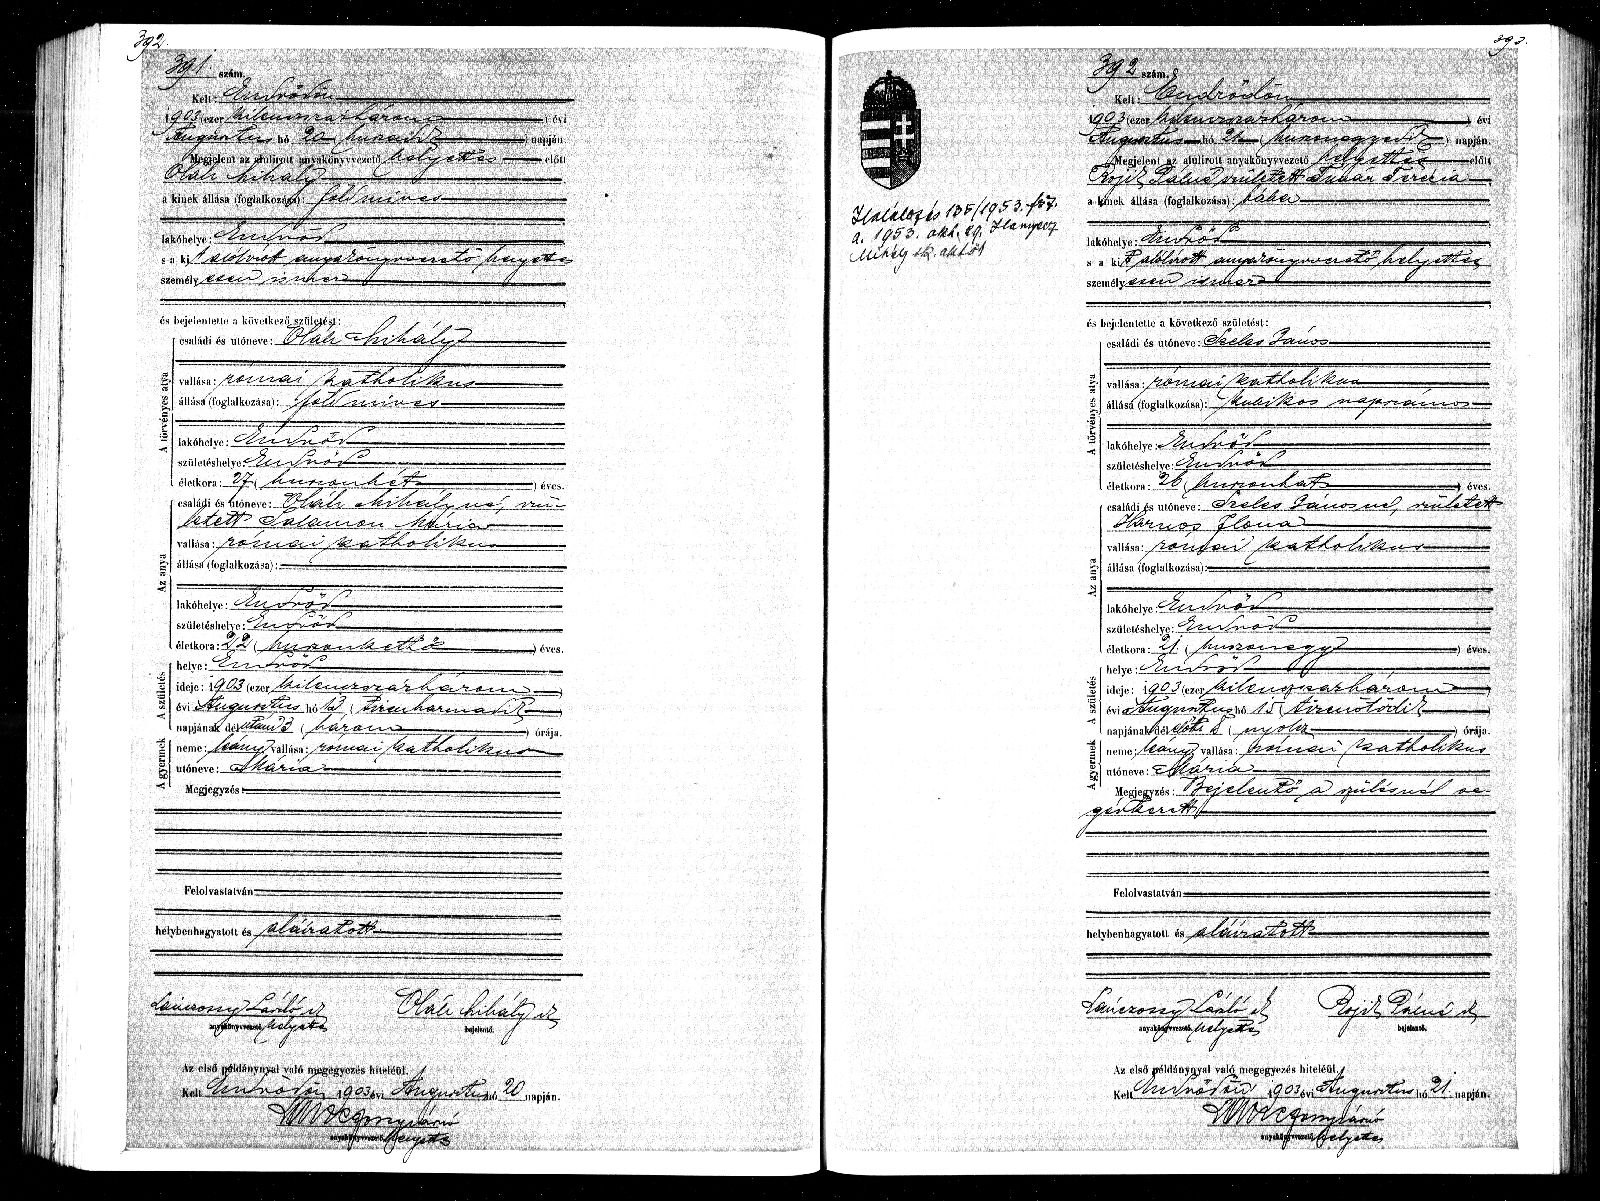 392.
391 szám.
Kelt: Endrődön
1903 (ezer kilenczszázhárom) évi
Augusztus hó 20 (huszadik) napján
Megjelent az alulirott anyakönyvvezető helyettes előtt
Oláh Mihály
a kinek állása (foglalkozása): földmives
lakóhelye: Endrőd
s a kit alulirott anyakönyvvezető helyettes
személyesen ismer
és bejelentette a következő születést:
A törvényes atya
családi és utóneve: Oláh Mihály
vallása: római katholikus
állása (foglalkozása): földmives
lakóhelye: Endrőd
születéshelye: Endrőd
életkora: 27 (huszonhét) éves.
Az anya
családi és utóneve: Oláh Mihályné, szü-
letett Salamon Mária
vallása: római katholikus
állása (foglalkozása):
lakóhelye: Endrőd
születéshelye: Endrőd
életkora: 22 (huszonkettő) éves.
A születés
helye: Endrőd
ideje: 1903 (ezer kilenczszázhárom)
évi Augusztus hó 13 (tizenharmadik)
napjának délután 3 (három) órája.
A gyermek
neme: leány vallása: római katholikus
utóneve: Mária
Megjegyzés:
Felolvastatván
helybenhagyatott és aláiratott
László sk Oláh Mihály sk
anyakönyvvezető helyettes bejelentő.
Az első példánynyal való megegyezés hiteléül.
Kelt Endrődön 1903 évi Augusztus hó 20 napján.
anyakönyvvezető helyettes
393.
Halálozás 135/1953.
a. 1953. okt. 29.
Mihály
392 szám.
Kelt: Endrődön
1903 (ezer kilenczszázhárom) évi
Augusztus hó 21 (huszonegyedik) napján.
Megjelent az alulirott anyakönyvvezető helyettes előtt
Rojik Pálné született Timár Terézia
a kinek állása (foglalkozása): bába
lakóhelye: Endrőd
s a kit alulirott anyakönyvvezető helyettes
személyesen ismer
és bejelentette a következő születést:
A törvényes atya
családi és utóneve: Szeles János
vallása: római katholikus
állása (foglalkozása): kubikos napszámos
lakóhelye: Endrőd
születéshelye: Endrőd
életkora: 26 (huszonhat) éves.
Az anya
családi és utóneve: Szeles Jánosné, született
Harnos Ilona
vallása: római katholikus
állása (foglalkozása):
lakóhelye: Endrőd
születéshelye: Endrőd
életkora: 21 (huszonegy) éves.
A születés
helye: Endrőd
ideje: 1903 (ezer kilenczszázhárom)
évi Augusztus hó 15 (tizenötödik)
napjának délelőtti 8 (nyolcz) órája.
A gyermek
neme: leány vallása: római katholikus
utóneve: Mária
Megjegyzés: Bejelentő a szülésnél se-
gédkezett
Felolvastatván
helybenhagyatott és aláiratott
László sk Rojik Pálné sk
anyakönyvvezető helyettes bejelentő.
Az első példánynyal való megegyezés hiteléül.
Kelt Endrődön 1903 évi Augusztus hó 21 napján.
anyakönyvvezető helyettes